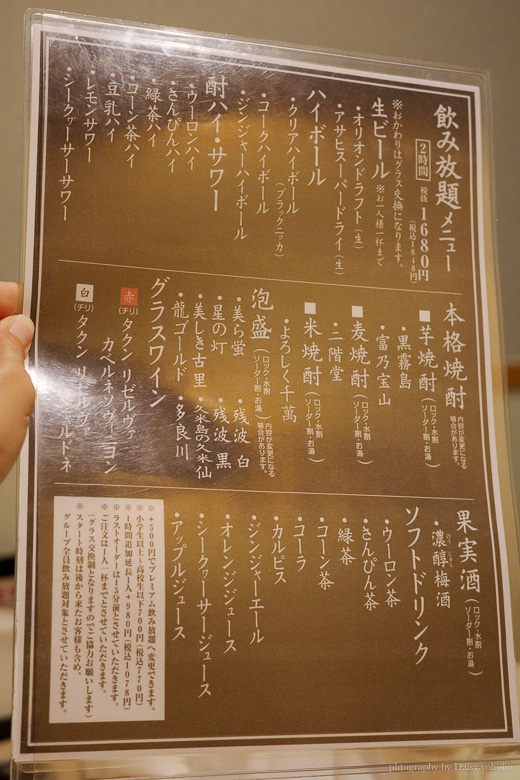 飲み放題メニュー
2時間 税抜 1680円
(税込1848円)
※おかわりはグラス交換になります。
生ビール ※お一人様一杯まで
・オリオンドラフト(生)
・アサヒスーパードライ(生)
ハイボール
・クリアハイボール
(ブラックニッカ)
・コークハイボール
・ジンジャーハイボール
酎ハイ・サワー
・ウーロンハイ
・さんぴんハイ
・緑茶ハイ
・コーン茶ハイ
・豆乳ハイ
・レモンサワー
・シークヮーサーサワー
本格焼酎 内容が変更になる場合があります。
■芋焼酎(ロック・水割 ソーダー割・お湯)
・黒霧島
・富乃宝山
■麦焼酎(ロック・水割 ソーダー割・お湯)
・二階堂
■米焼酎(ロック・水割 ソーダー割・お湯)
・よろしく千萬
泡盛(ロック・水割 ソーダー割・お湯) 内容が変更になる場合があります。
・美ら蛍 ・残波 白
・星の灯 ・残波 黒
・美しき古里 ・久米島の久米仙
・龍ゴールド ・多良川
グラスワイン
赤(チリ) タクン リゼルヴァ
カベルネソヴィヨン
白(チリ) タクン
果実酒(ロック・水割 ソーダー割・お湯)
・濃醇梅酒
のうじゅん
ソフトドリンク
・ウーロン茶
・さんぴん茶
・緑茶
・コーン茶
・コーラ
・カルピス
・ジンジャーエール
・オレンジジュース
・シークヮーサージュース
・アップルジュース
※+500円でプレミアム飲み放題へ変更できます。
※小学生以上〜高校生以下700円(税込770円)
※1時間追加延長1人+980円(税込1078円)
※ラストオーダーは15分前とさせていただきます。
※ご注文は1人一杯までとさせていただきます。
(グラス交換制となりますのでご協力お願いします)
※スタート時刻は後から来たお客様も含め、
グループ全員飲み放題対象とさせていただきます。
photography by Daisy yohoho